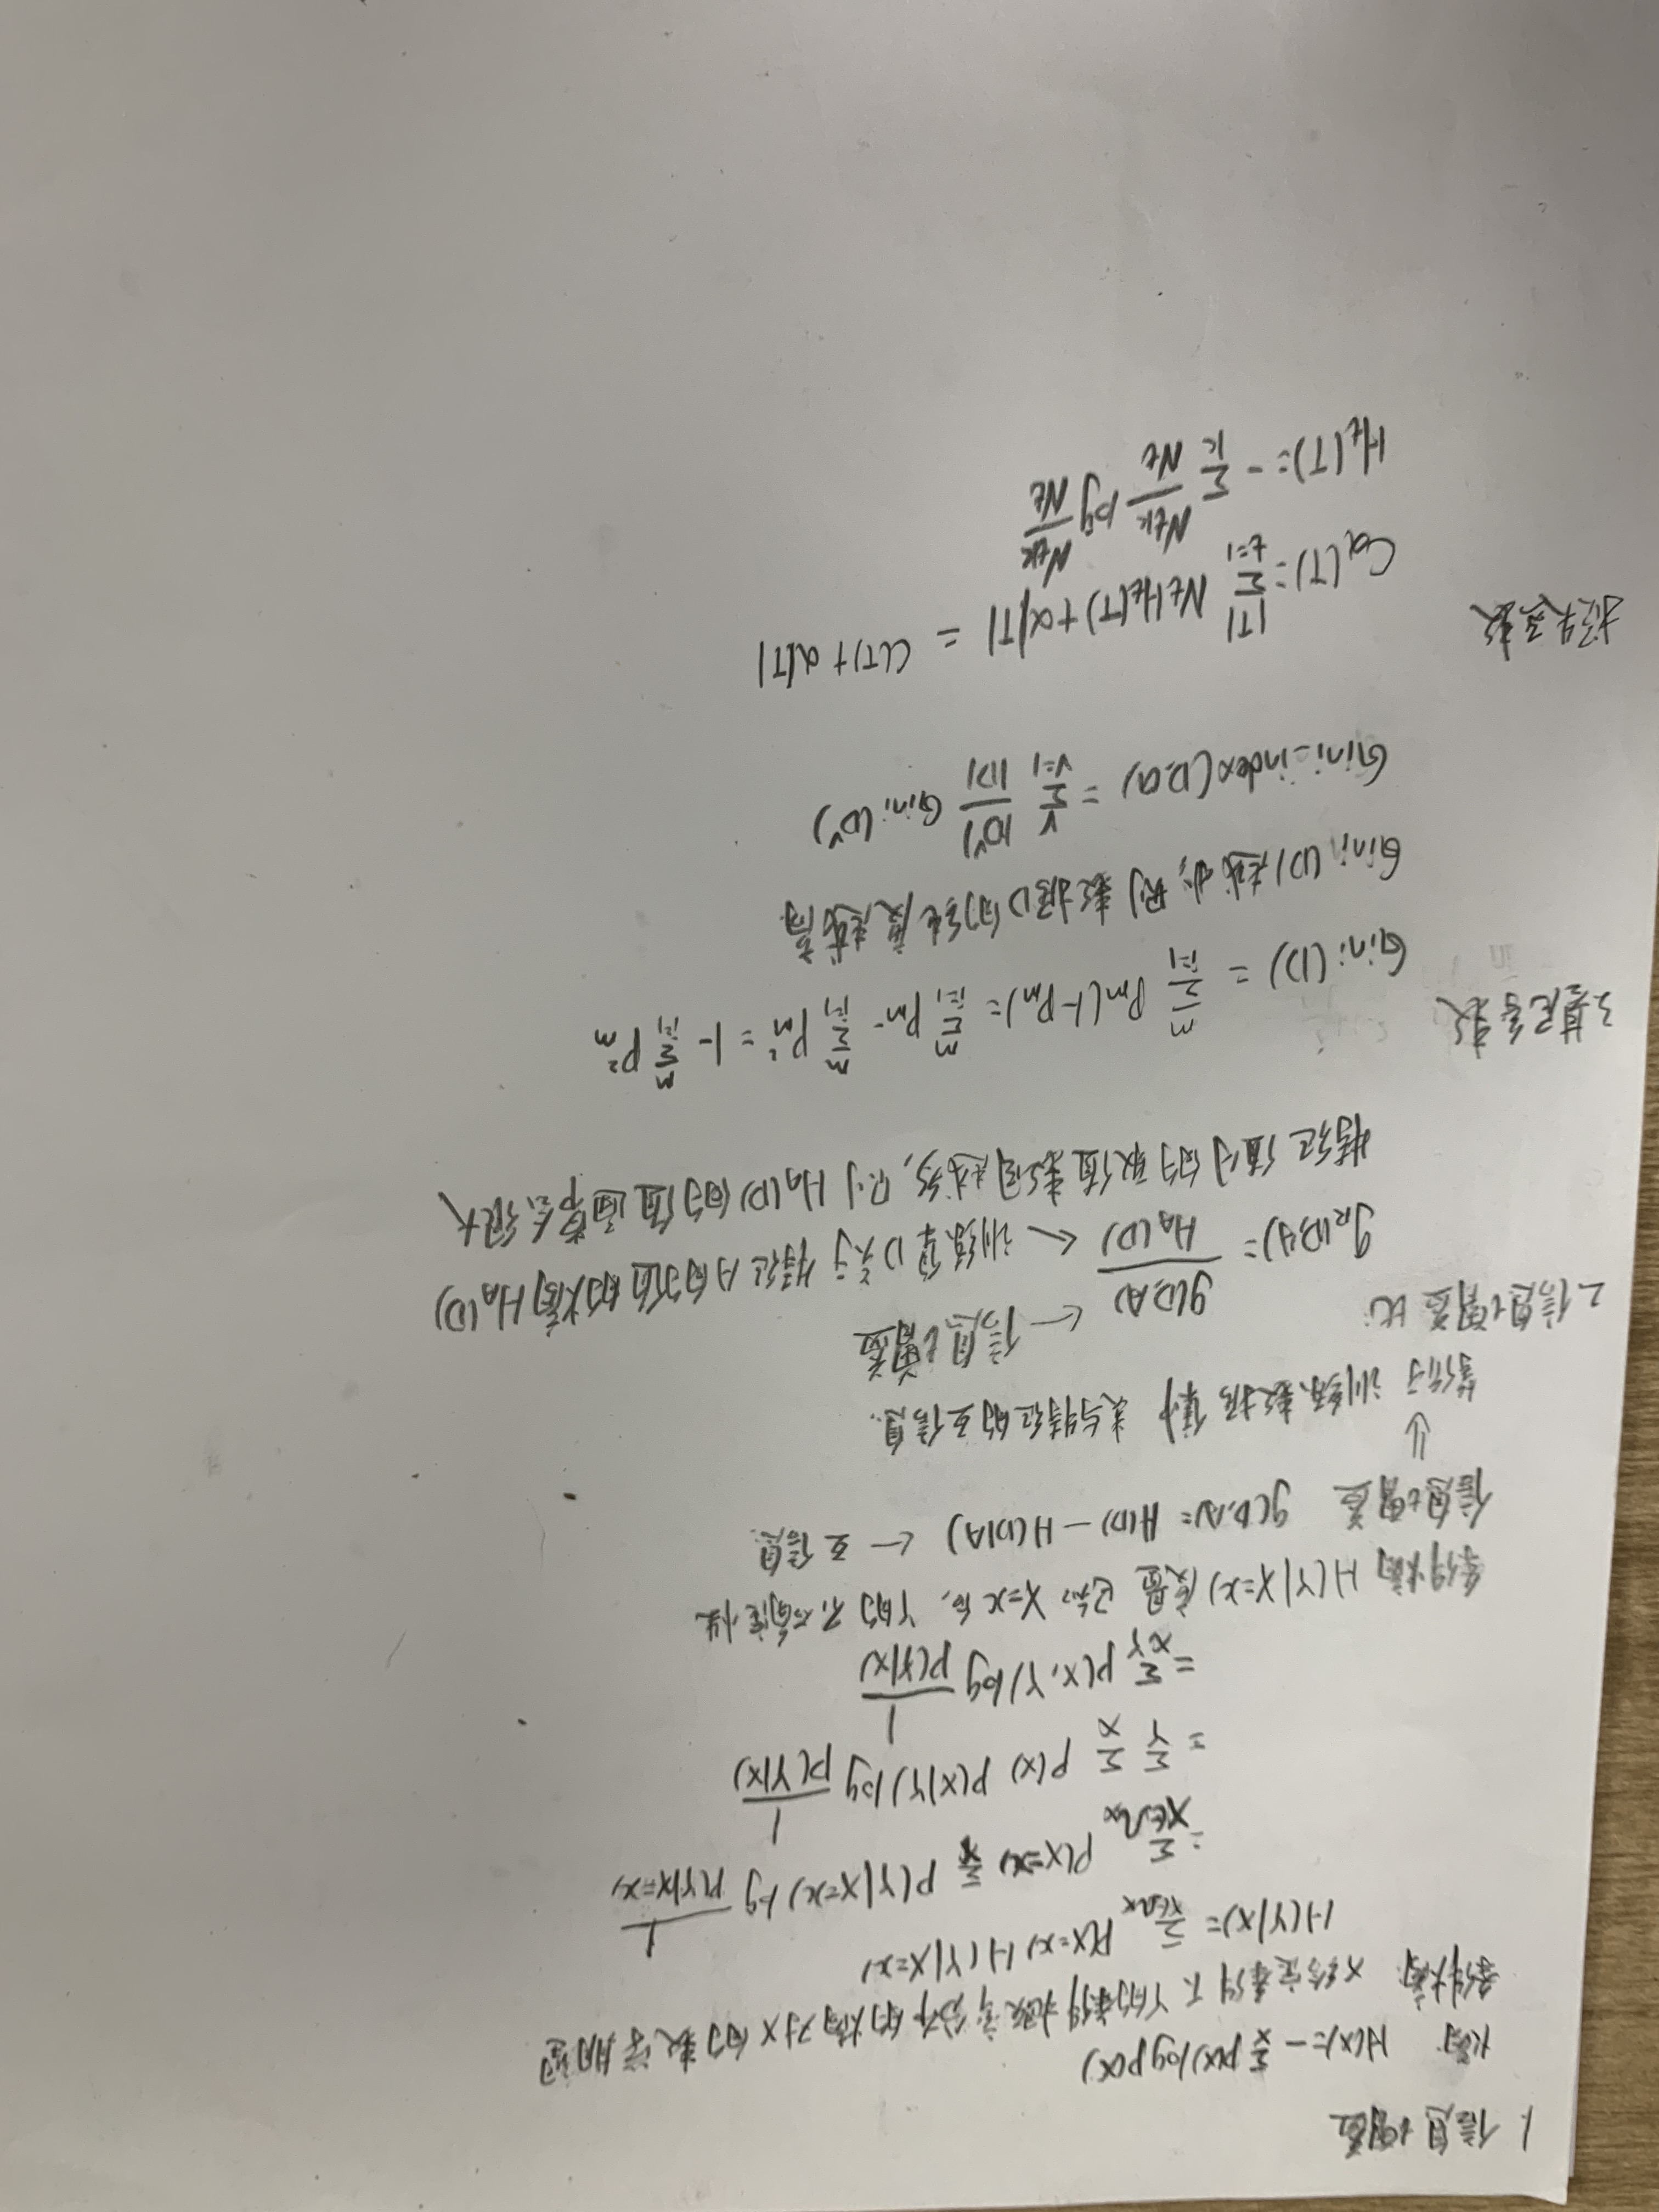 1. 信息增益
熵 H(X)=-∑_x p(x)log p(x)
条件熵: X给定条件下 Y的条件概率分布的熵对X的数学期望
H(Y|X)=∑_{X∈Ω_X} P(X=x) H(Y|X=x)
=∑_{X∈Ω_X} P(X=x) ∑_Y P(Y|X=x) log 1/P(Y|X=x)
=∑_Y ∑_X P(X) P(X|Y) log 1/P(Y|X)
=∑_{XY} P(X,Y) log 1/P(Y|X)
条件熵 H(Y|X=x)度量 已知 X=x后, Y的不确定性
信息增益 g(D,A)= H(D)-H(D|A) ← 互信息
⇓
等价于 训练数据集中 类与特征的互信息.
2. 信息增益比
g_R(D,A)= g(D,A)/H_A(D)
← 信息增益
← 训练集D关于特征A的值的熵 H_A(D)
特征值A的取值数目越多, 则 H_A(D)的值通常会很大
3. 基尼系数
Gini(D) = ∑_{i=1}^m P_m(1-P_m)= ∑_{i=1}^m P_m- ∑_{i=1}^m P_m^2 = 1- ∑_{i=1}^m P_m^2
Gini(D)越小, 则数据D的纯度越高
Gini_index(D,a) = ∑_{v=1}^V |D^v|/|D| Gini(D^v)
损失函数
C_α(T)=∑_{t=1}^{|T|} N_t H_t(T)+α|T| = C(T)+α|T|
H_t(T)=-∑_k N_tk/N_t log N_tk/N_t